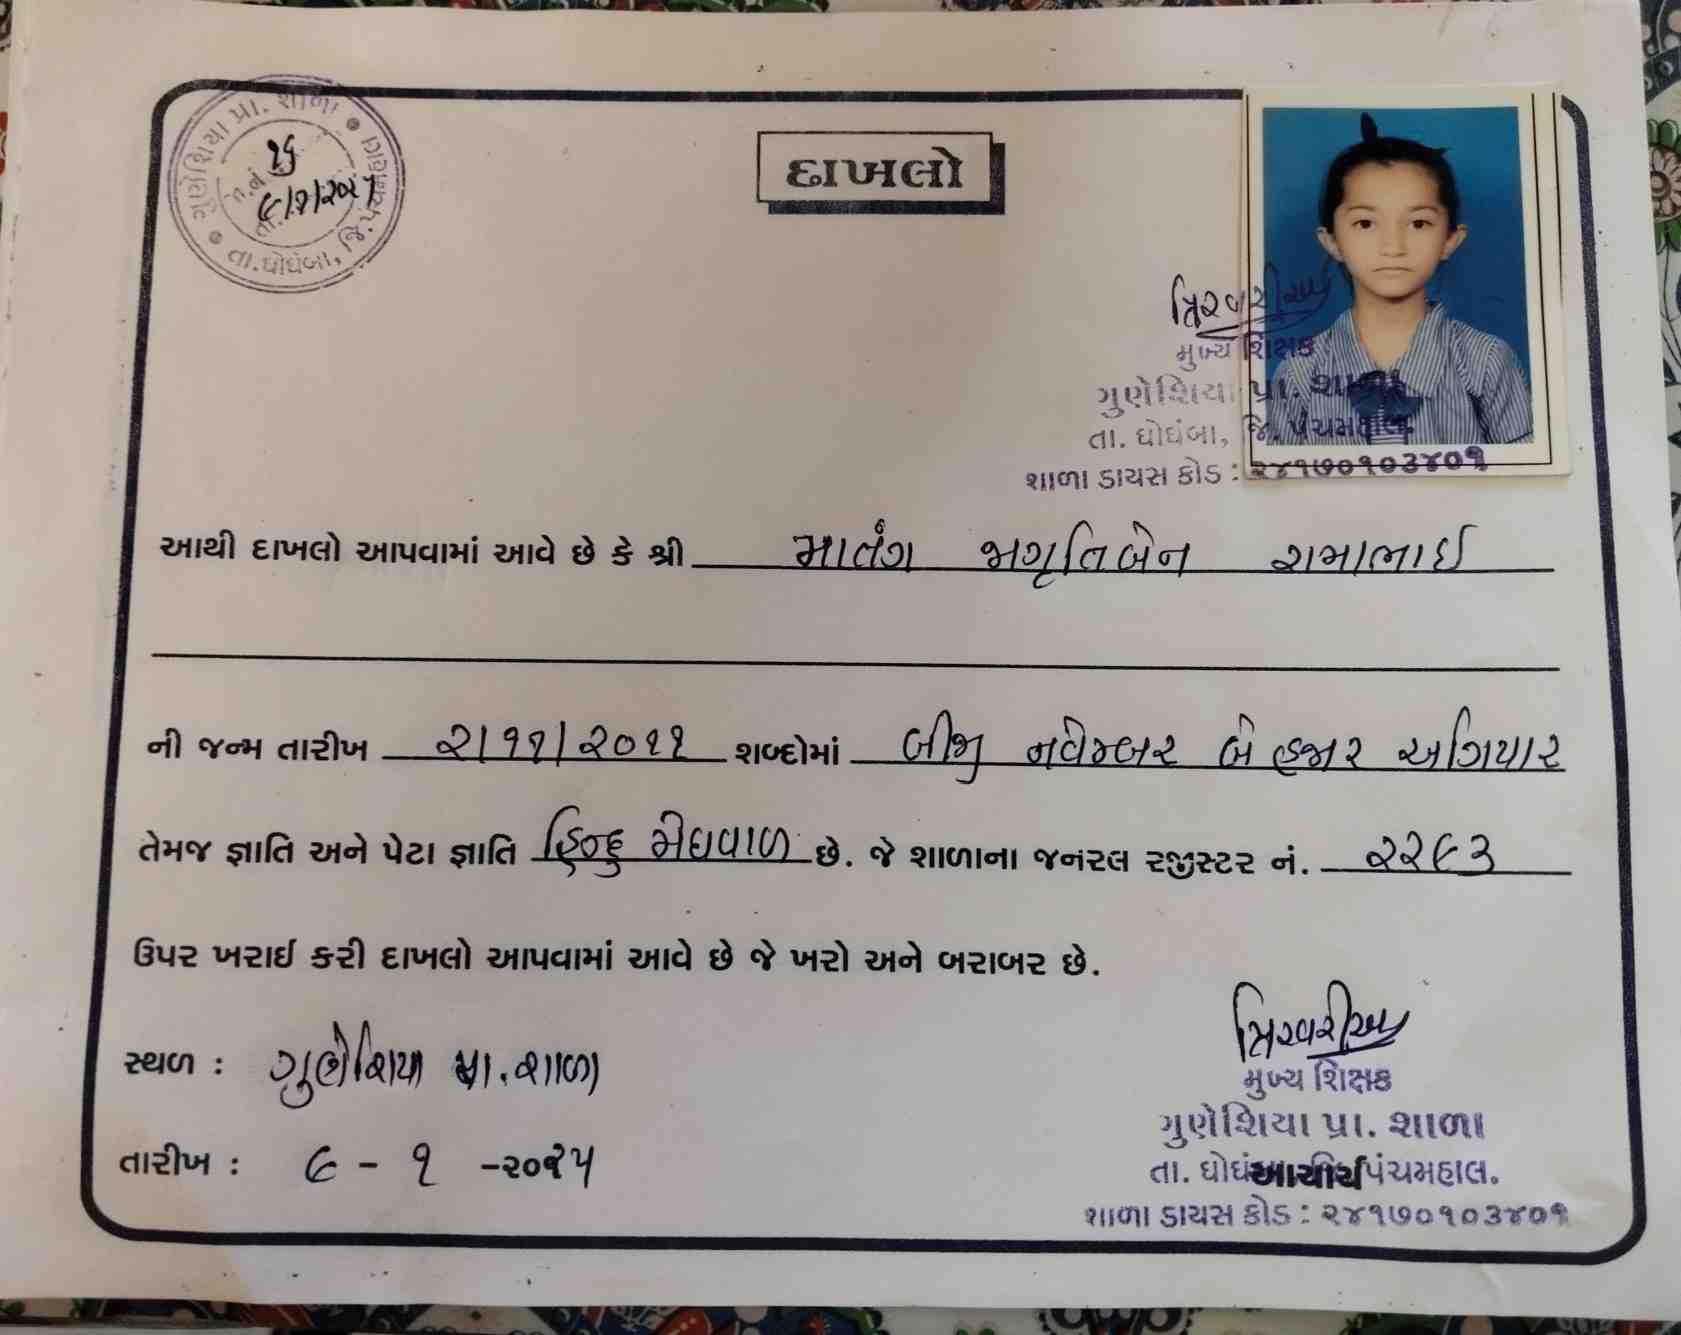 ગુણેશિયા પ્રા. શાળા
તા.ઘોઘંબા, જિ.પંચમહાલ
દાખલો
મુખ્ય શિક્ષક
ગુણેશિયા પ્રા. શાળા
તા. ઘોઘંબા, જિ. પંચમહાલ.
શાળા ડાયસ કોડ : ૨૪૧૭૦૧૦૩૪૦૧
આથી દાખલો આપવામાં આવે છે કે શ્રી માતંગ જાગૃતિબેન રામાભાઈ
ની જન્મ તારીખ ૨/૧૧/૨૦૧૧ શબ્દોમાં બીજી નવેમ્બર બે હજાર અગિયાર
તેમજ જ્ઞાતિ અને પેટા જ્ઞાતિ હિન્દુ મેઘવાળ છે. જે શાળાના જનરલ રજીસ્ટર નં. ૨૨૯૩
ઉપર ખરાઈ કરી દાખલો આપવામાં આવે છે જે ખરો અને બરાબર છે.
સ્થળ : ગુણેશિયા પ્રા. શાળા
તારીખ : ૯ - ૧ -૨૦૨૫
મુખ્ય શિક્ષક
ગુણેશિયા પ્રા. શાળા
તા. ઘોઘંબા, જિ. પંચમહાલ.
આચાર્ય
શાળા ડાયસ કોડ : ૨૪૧૭૦૧૦૩૪૦૧